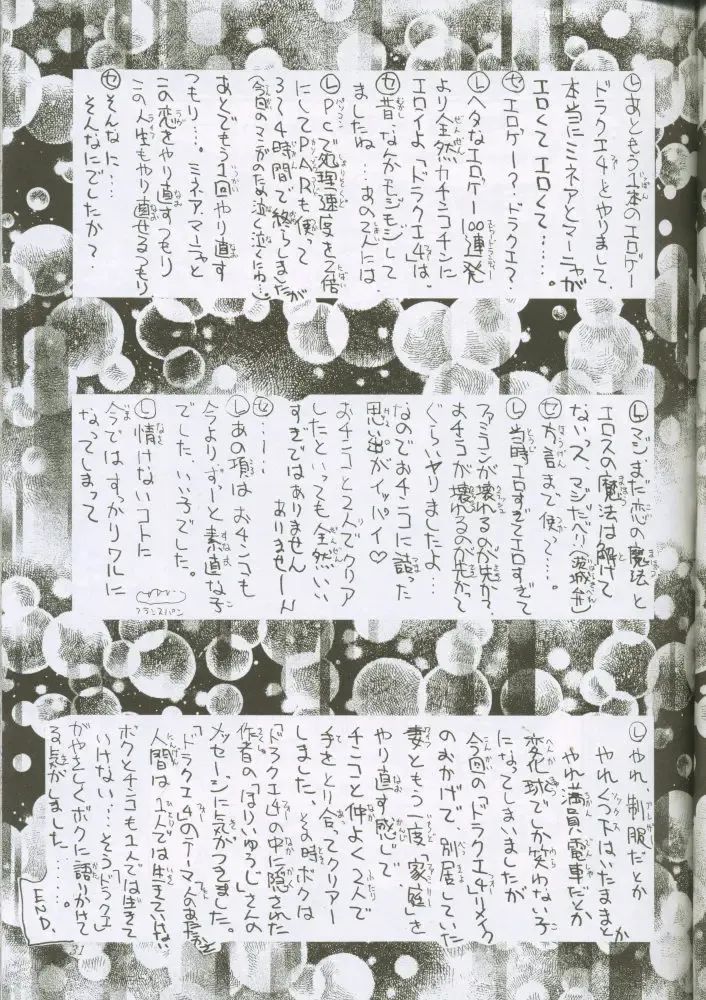 Ⓛあともう1本のエロゲー
ドラクエ4とやりまして、
本当にミネアとマーニャが
エロくてエロくて……。
セエロゲー?ドラクエ?
Ⓛヘタなエロゲー100連発
より全然カチンコチンに
エロイよ「ドラクエ4」は。
セ昔、なんかモジモジして
ましたね…あの2人には、
ⓁPCで処理速度を2倍
にしてPARも使って
3〜4時間で終らしましたが
(今回のマンガの為泣く泣くにゅ…)
あとでもう1回やり直す
つもり…。ミネア、マーニャと
この恋をやり直すつもり
この人生もやり直せるつもり
セそんなに…
そんなにでしたか?
Ⓛマジまだ恋の魔法と
エロスの魔法は解けて
ないっス、マジだべリ(茨城弁)
セ方言まで使って…。
Ⓛ当時エロすぎてエロすぎて
ファミコンが壊れるのが先か?
おチコが壊れるのが先かって
ぐらいヤリましたよ…
なのでおチンコに詰った
思い出がイッパイ♡
おチンコと2人でクリア
したといっても全然いい
すぎではありません
ありませーん
セ……
Ⓛあの頃はおチンコも
今よりずーと素直な子
でした、いい子でした。
Ⓛ情けないコトに
今ではすっかりワルに
なってしまって
フランスパン
Ⓛやれ、制服だとか
やれくつ下はいたままとか
やれ満員電車だとか
変化球でしか笑わない子
になってしまいましたが
今回の「ドラクエ4」リメイク
のおかげで、別居していた
妻ともう一度「家庭」を
やり直す感じで、
チンコと仲よく2人で
手をとり合ってクリアー
しました。その時ボクは
「ドラクエ4」の中に隠された
作者の「ほりいゆうじ」さんの
メッセージに気がつきました。
「ドラクエ4」のテーマ「人のあたたかさ」
人間は1人では生きていけない
ボクとチンコも1人では生きて
いけない…そうドラクエ
がやさしくボクに語りかけて
る気がしました……。
END.
31